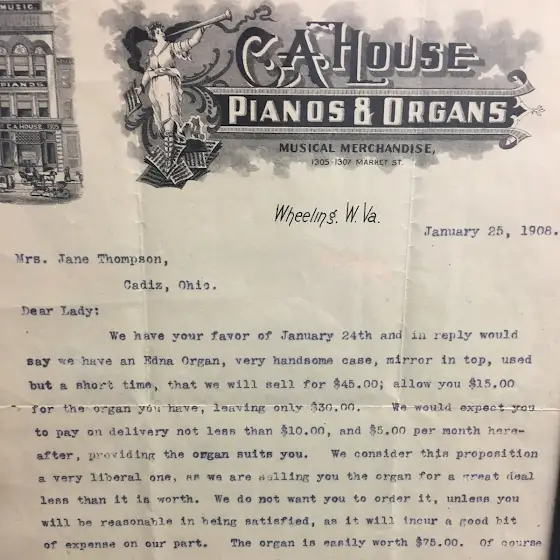 MUSIC
PIANOS
C.A. HOUSE
C.A. HOUSE
PIANOS & ORGANS
MUSICAL MERCHANDISE,
1305-1307 MARKET ST.
Wheeling, W. Va.
January 25, 1908.
Mrs. Jane Thompson,
Cadiz, Ohio.
Dear Lady:
We have your favor of January 24th and in reply would
say we have an Edna Organ, very handsome case, mirror in top, used
but a short time, that we will sell for $45.00; allow you $15.00
for the organ you have, leaving only $30.00. We would expect you
to pay on delivery not less than $10.00, and $5.00 per month here-
after, providing the organ suits you. We consider this proposition
a very liberal one, as we are selling you the organ for a great deal
less than it is worth. We do not want you to order it, unless you
will be reasonable in being satisfied, as it will incur a good bit
of expense on our part. The organ is easily worth $75.00. Of course